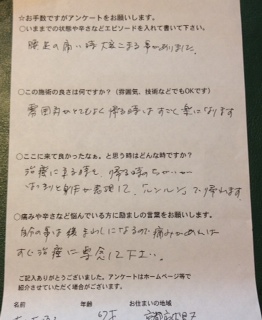 ☆お手数ですがアンケートをお願いします。
○いままでの状態や辛さなどエピソードを入れて書いて下さい。
腰足の痛い時 大変こまる事がありました。
○この施術の良さは何ですか？(雰囲気、技術などでもOKです)
雰囲気がとてもよく 帰る時は すごく楽になります
○ここに来て良かったなぁ。と思う時はどんな時ですか？
治療にくる時と、帰る時のちがいが
はっきりと
「ルンルン」で帰れます
○痛みや辛さなど悩んでいる方に励ましの言葉をお願いします。
自分の事は後まわしになるが、痛みが
すぐ治療に専念して下さい。
ご記入ありがとうございました。アンケートはホームページ等で
紹介させていただく場合がございます。
名前 年齢 お住まいの地域